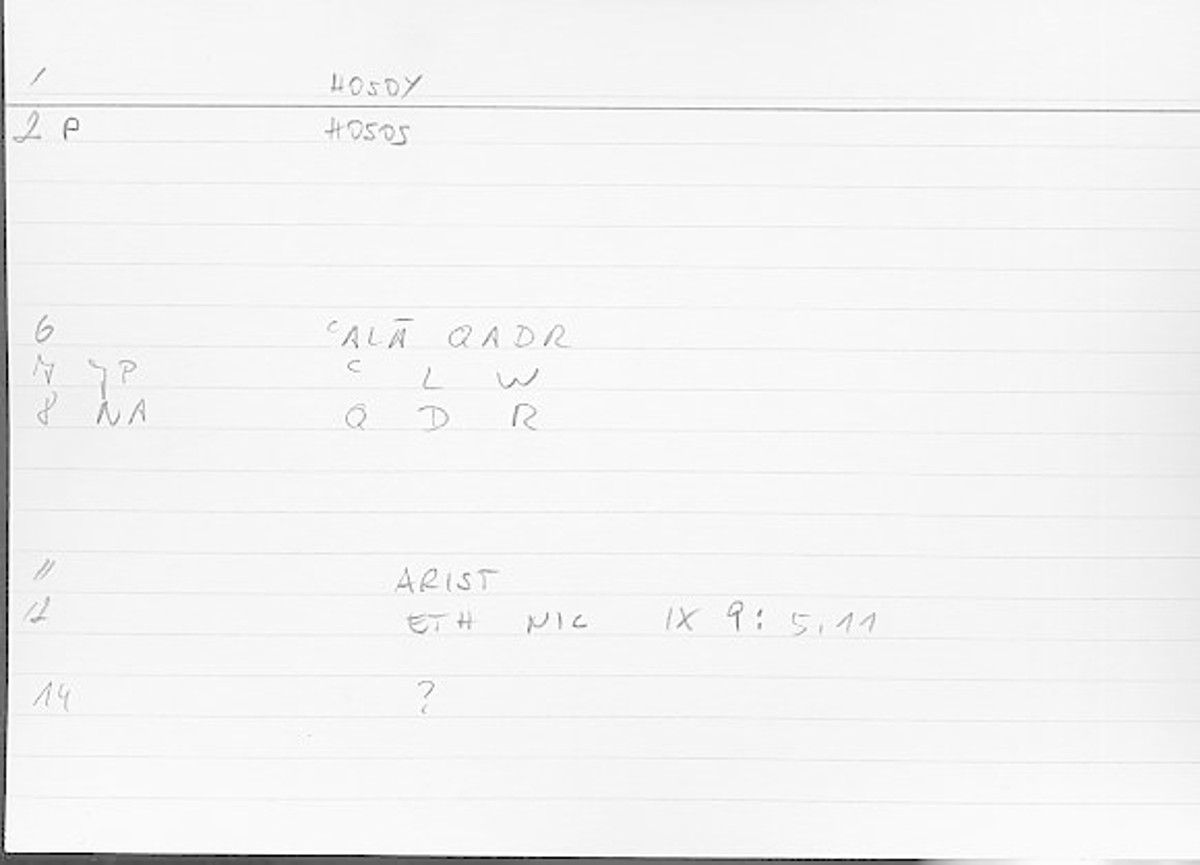 1 HOSOY
2 P HOSOS
6 ʿALĀ QADR
7 YP ʿ L W
8 NA Q D R
11 ARIST
12 ETH NIC IX 9: 5,11
14 ?